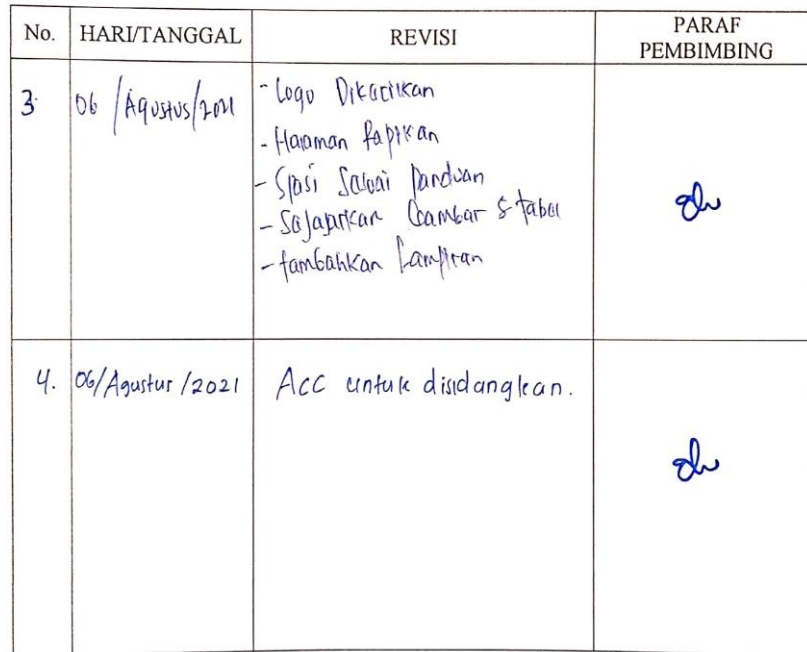 No. HARI/TANGGAL REVISI PARAF PEMBIMBING
3 06/Agustus/2021
- Logo Dikecilkan
- Halaman Rapikan
- Spasi Sesuai Panduan
- Sejajarkan Gambar & tabel
- tambahkan Lampiran
4. 06/Agustus/2021 Acc untuk disidangkan.